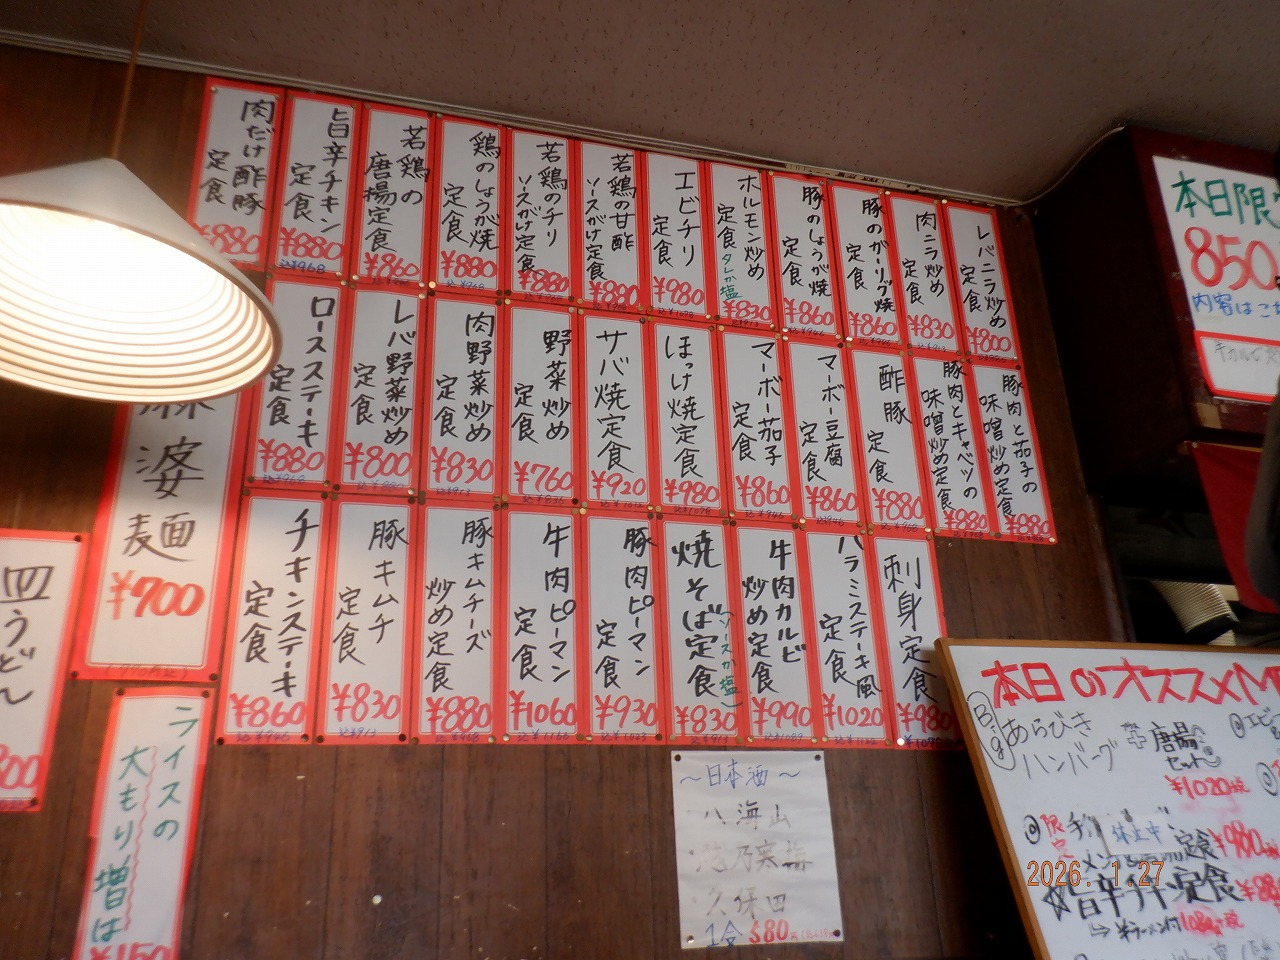 レバニラ炒め
定食
¥800
肉ニラ炒め
定食
¥830
豚のガーリック焼
定食
¥860
豚のしょうが焼
定食
¥860
ホルモン炒め
定食 タレか塩
¥830
エビチリ
定食
¥980
若鶏の甘酢
ソースがけ定食
¥880
若鶏のチリ
ソースがけ定食
¥880
鶏のしょうが焼
定食
¥880
若鶏の
唐揚定食
¥860
旨辛チキン
定食
¥880
込¥968
肉だけ酢豚
定食
¥880
豚肉と茄子の
味噌炒め定食
¥880
豚肉とキャベツの
味噌炒め定食
¥880
酢豚
定食
¥880
マーボー豆腐
定食
¥860
マーボー茄子
定食
¥860
ほっけ焼定食
¥980
サバ焼定食
¥920
野菜炒め
定食
¥760
肉野菜炒め
定食
¥830
レバ野菜炒め
定食
¥800
ロースステーキ
定食
¥880
刺身定食
¥980
ハラミステーキ風
定食
¥1020
牛肉カルビ
炒め定食
¥990
焼そば定食
(ソースか塩)
¥830
豚肉ピーマン
定食
¥930
牛肉ピーマン
定食
¥1060
豚キムチーズ
炒め定食
¥880
豚キムチ
定食
¥830
チキンステーキ
定食
¥860
婆麺
¥700
皿うどん
ライスの
大もり増は
¥150
〜日本酒〜
八海山
越乃寒梅
久保田
1合 880円
本日限定
850
内容はこち
本日のオススメM
Big あらびき
ハンバーグ
唐揚
セット
¥1020
限定
休止中
定食 ¥980
☆旨辛チキン定食 ¥88
→半ラーメン付 1080
2026. 1.27